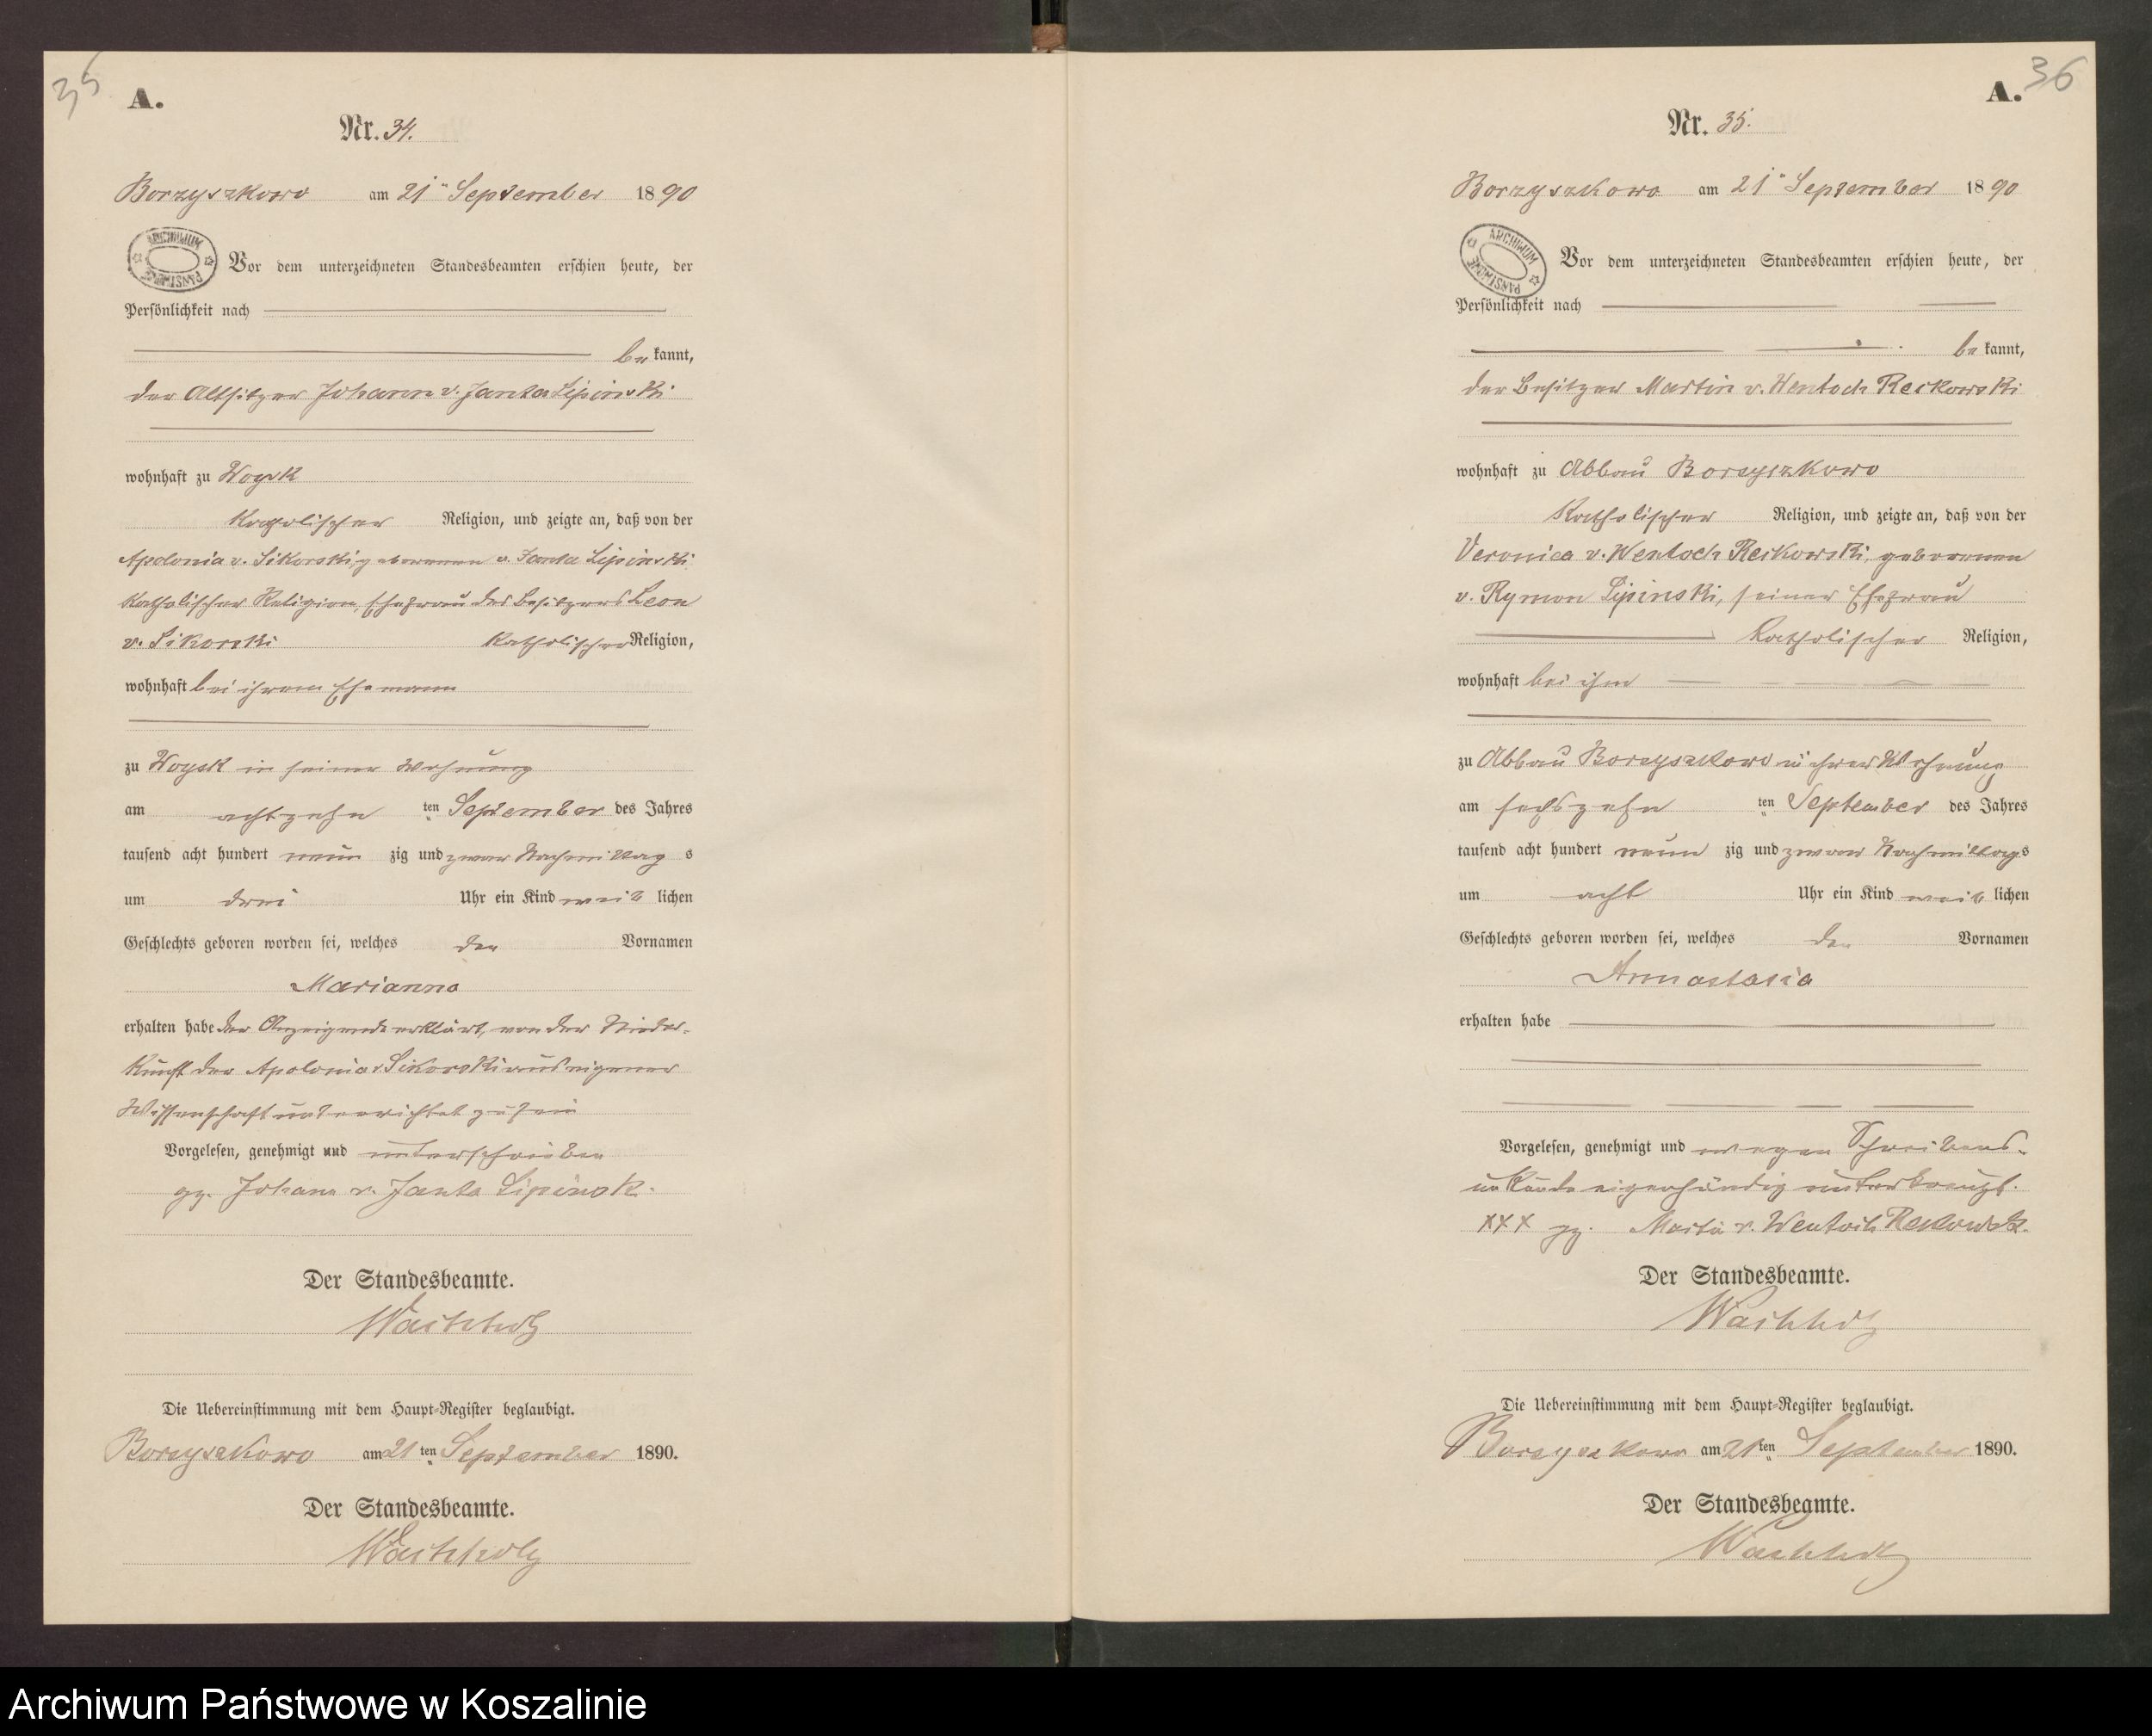 35
A.
Nr. 34.
Borzyszkowo am 21ten September 1890
ARCHIWUM PAŃSTWOWE
Vor dem unterzeichneten Standesbeamten erschien heute, der
Persönlichkeit nach
bekannt,
der Altsitzer Johann v. Janta Lipinski
wohnhaft zu Woysk
katholischer Religion, und zeigte an, daß von der
Apolonia v. Sikorski, geborenen v. Janta Lipinski
katholischer Religion, Ehefrau des Besitzers Leon
v. Sikorski katholischer Religion,
wohnhaft bei ihrem Ehemann
zu Woysk in seiner Wohnung
am achtzehn ten September des Jahres
tausend acht hundert neun zig und zwar Nachmittag s
um drei Uhr ein Kind weib lichen
Geschlechts geboren worden sei, welches den Vornamen
Marianna
erhalten habe der Anzeigende erklärt, von der Nieder-
kunft der Apolonia v. Sikorski aus eigener
Wissenschaft unterrichtet zu sein
Vorgelesen, genehmigt und unterschrieben
gz. Johann v. Janta Lipinski
Der Standesbeamte.
Wachholz
Die Uebereinstimmung mit dem Haupt-Register beglaubigt.
Borzyszkowo am 21 ten September 1890.
Der Standesbeamte.
Wachholz
36
A.
Nr. 35.
Borzyszkowo am 21ten September 1890
ARCHIWUM PAŃSTWOWE
Vor dem unterzeichneten Standesbeamten erschien heute, der
Persönlichkeit nach
bekannt,
der Besitzer Martin v. Wentoch Reikowski
wohnhaft zu Abbau Borzyszkowo
katholischer Religion, und zeigte an, daß von der
Veronica v. Wentoch Reikowski, geborenen
v. Rymon Lipinski, seiner Ehefrau
katholischer Religion,
wohnhaft bei ihm
zu Abbau Borzyszkowo in ihrer Wohnung
am sechszehn ten September des Jahres
tausend acht hundert neun zig und zwar Nachmittags
um acht Uhr ein Kind weib lichen
Geschlechts geboren worden sei, welches den Vornamen
Annastasia
erhalten habe
Vorgelesen, genehmigt und wegen Schreibens-
unkunde eigenhändig unterkreuzt.
XXX gz. Martin v. Wentoch Reikowski.
Der Standesbeamte.
Wachholz
Die Uebereinstimmung mit dem Haupt-Register beglaubigt.
Borzyszkowo am 21 ten September 1890.
Der Standesbeamte.
Wachholz
Archiwum Państwowe w Koszalinie